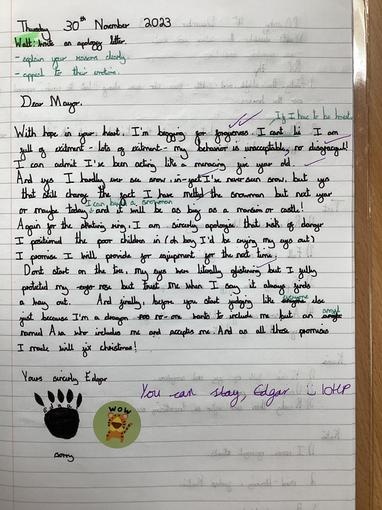 Thursday 30th November 2023
Walt: write an apology letter.
- explain your reasons clearly
- appeal to their emotions.
Dear Mayor,
If I have to be honest
With hope in your heart, I'm begging for forgiveness. I cant lie I am
full of exitment - lots of exitment - my behavior is unacceptable, no
I can admit I've been acting like a menacing five year old.
And yes I hardly ever see snow, in-fact I've never seen snow, but yes
that still change the fact I have melted the snowman but next year
I can build a snowman
or maybe today and it will be as big as a mansion or castle!
Again for the skating ring, I am sincerly apologise that risk of danger
I positioned the poor children in (oh boy I'd be crying my eyes out)
I promise I will provide for equipment for the next time.
Dont start on the tree, my eyes were literally glistening but I fully
my rose but trust me when I say it always finds
a way out. And finally, before you start judging like everyone else
just because I'm a dragon no-one wants to include me but an angel
named who includes me and accepts me. And as all these promises
I made will fix christmas!
Yours sincerly Edgar
edgar
WOW
You can stay, Edgar 10HP
sorry